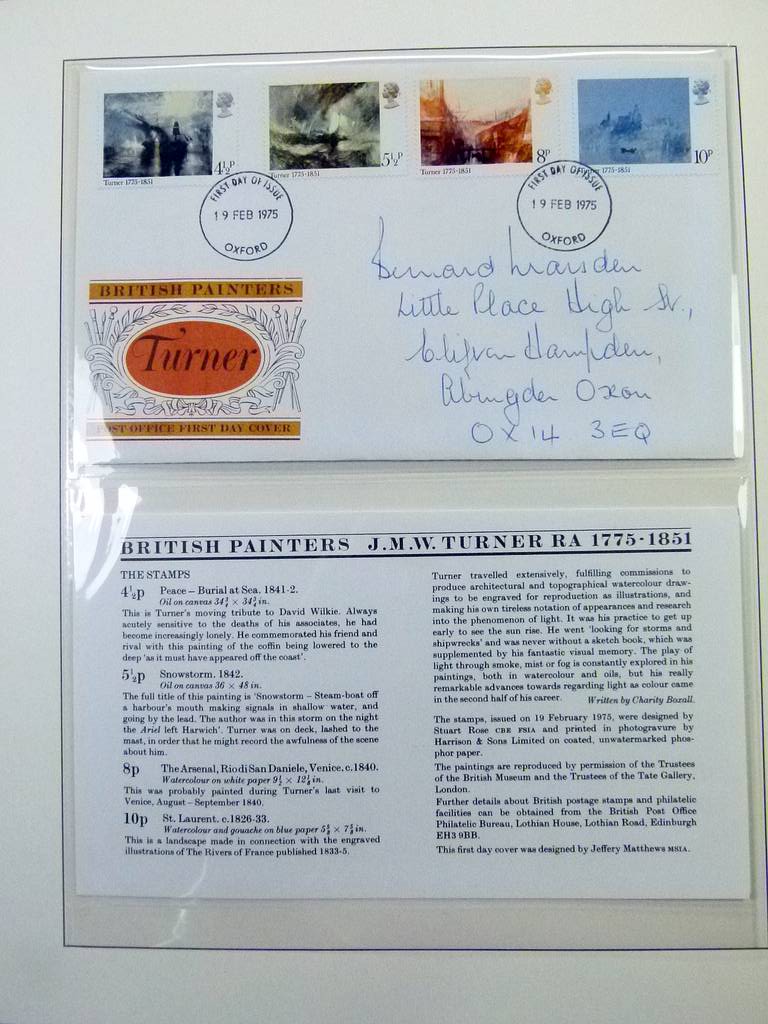 4½P
5½P
8P
10P
Turner 1775-1851
Turner 1775-1851
Turner 1775-1851
Turner 1775-1851
FIRST DAY OF ISSUE
19 FEB 1975
OXFORD
FIRST DAY OF ISSUE
19 FEB 1975
OXFORD
BRITISH PAINTERS
Turner
POST OFFICE FIRST DAY COVER
Bernard Marsden
Little Place High St.,
Hampden,
Oxon
OX14 3EQ
BRITISH PAINTERS J.M.W. TURNER RA 1775-1851
THE STAMPS
4½p Peace – Burial at Sea. 1841-2.
Oil on canvas 34¾ × 34¾ in.
This is Turner's moving tribute to David Wilkie. Always
acutely sensitive to the deaths of his associates, he had
become increasingly lonely. He commemorated his friend and
rival with this painting of the coffin being lowered to the
deep 'as it must have appeared off the coast'.
5½p Snowstorm. 1842.
Oil on canvas 36 × 48 in.
The full title of this painting is 'Snowstorm – Steam-boat off
a harbour's mouth making signals in shallow water, and
going by the lead. The author was in this storm on the night
the Ariel left Harwich'. Turner was on deck, lashed to the
mast, in order that he might record the awfulness of the scene
about him.
8p The Arsenal, Rio di San Daniele, Venice. c.1840.
Watercolour on white paper 9½ × 12¼ in.
This was probably painted during Turner's last visit to
Venice, August – September 1840.
10p St. Laurent. c.1826-33.
Watercolour and gouache on blue paper 5⅝ × 7⅝ in.
This is a landscape made in connection with the engraved
illustrations of The Rivers of France published 1833-5.
Turner travelled extensively, fulfilling commissions to
produce architectural and topographical watercolour draw-
ings to be engraved for reproduction as illustrations, and
making his own tireless notation of appearances and research
into the phenomenon of light. It was his practice to get up
early to see the sun rise. He went 'looking for storms and
shipwrecks' and was never without a sketch book, which was
supplemented by his fantastic visual memory. The play of
light through smoke, mist or fog is constantly explored in his
paintings, both in watercolour and oils, but his really
remarkable advances towards regarding light as colour came
in the second half of his career. Written by Charity Boxall.
The stamps, issued on 19 February 1975, were designed by
Stuart Rose CBE FSIA and printed in photogravure by
Harrison & Sons Limited on coated, unwatermarked phos-
phor paper.
The paintings are reproduced by permission of the Trustees
of the British Museum and the Trustees of the Tate Gallery,
London.
Further details about British postage stamps and philatelic
facilities can be obtained from the British Post Office
Philatelic Bureau, Lothian House, Lothian Road, Edinburgh
EH3 9BB.
This first day cover was designed by Jeffery Matthews MSIA.